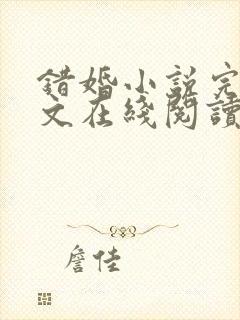 错婚小说完
文在綫閱讀
詹佳